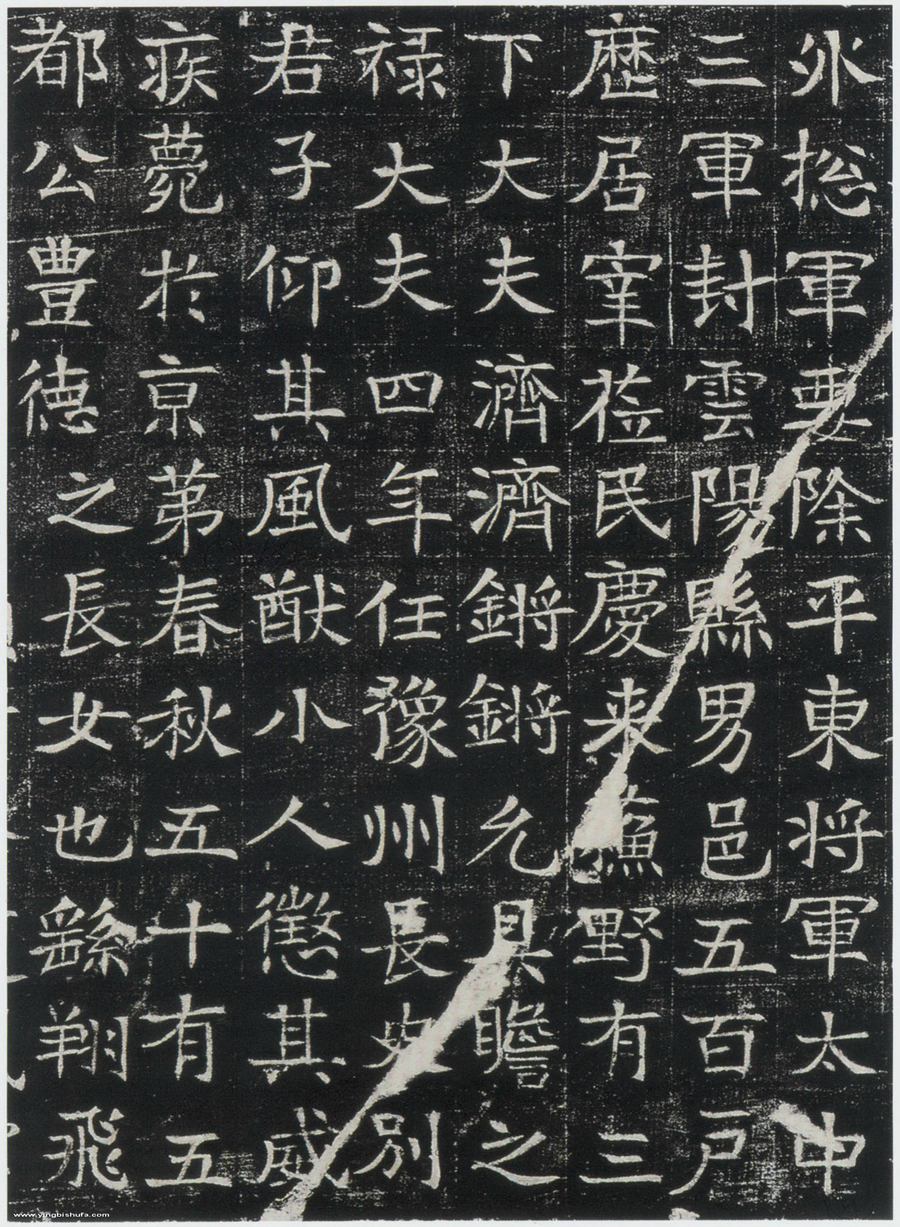 外揔軍要除平東将軍太中
二軍封雲陽縣男邑五百戸
歴居宰莅民慶来蘓野有三
下大夫濟濟鏘鏘允具瞻之
禄大夫四年任豫州長史別
君子仰其風猷小人懲其威
疾薨於京苐春秋五十有五
都公豊德之長女也繇翔飛
www.yingbishufa.com